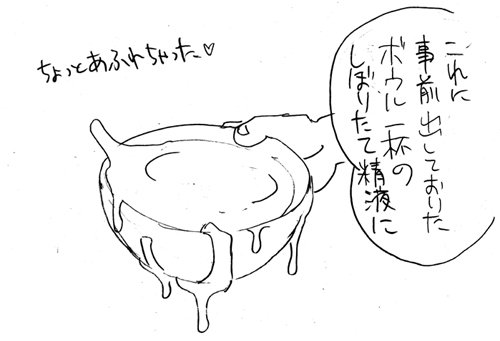 これに
事前出しておりた
ボウル一杯の
しぼりたて精液に
ちょっとあふれちゃった♡